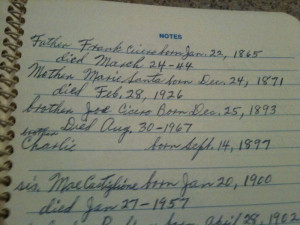 NOTES
Father Frank Cicero born Jan. 22, 1865
died March 24-44
Mother Marie Santa born Dec. 24, 1871
died Feb. 28, 1926
brother Joe Cicero Born Dec. 25, 1893
Died Aug. 30-1967
Charlie born Sept. 14, 1897
sis. Mae Castiglione born Jan 20, 1900
died Jan 27-1957
born april 28, 1902